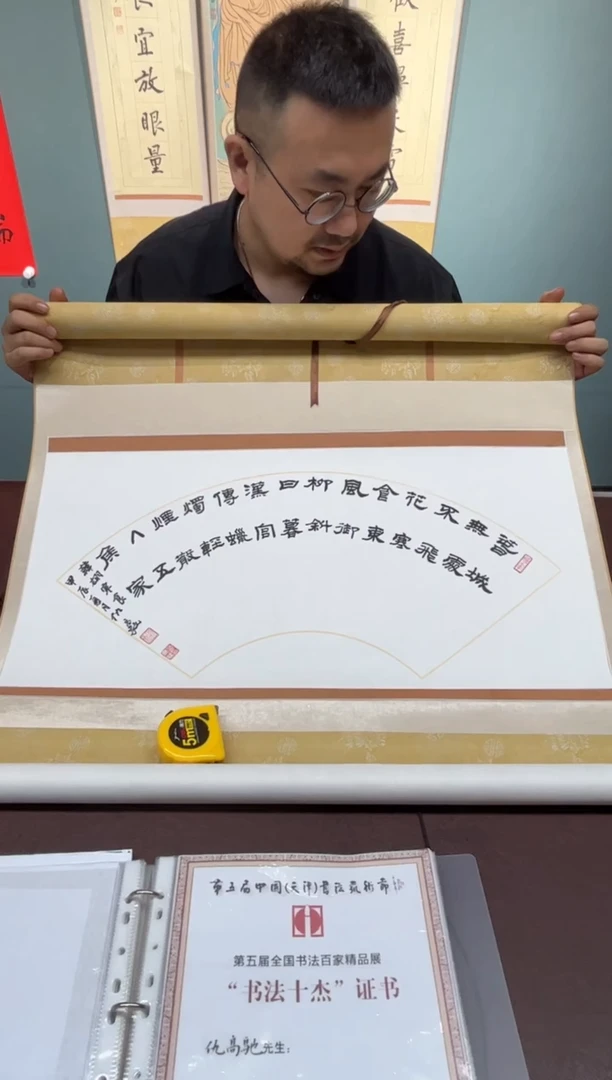 宜放眼量
喜
萅城
無處
不飛
花寒
食東
風御
柳斜
日暮
漢宮
傳蠋
燭輕
煙散
入五
侯家
韓翃寒食
甲辰酉月仇
5m
第五届中国(天津)书法艺术节
第五届全国书法百家精品展
“书法十杰”证书
仇高驰先生：